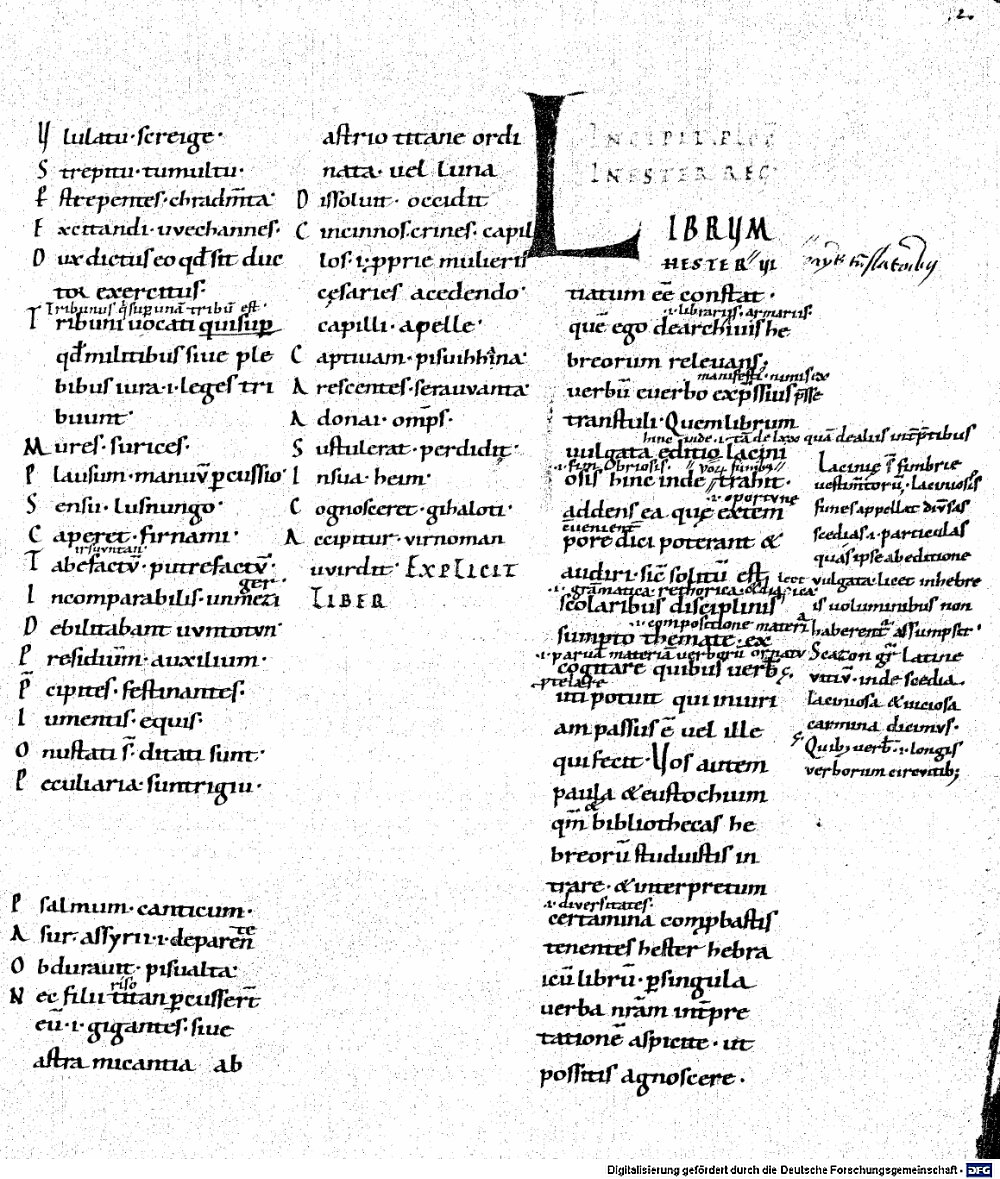 .2.
Ululatu· screige·
Strepitu· tumultu·
Pstrepentes· chradm̄ta·
Excitandi· uvechannes·
Dux dictus eo qđ sit duc
tor exercitus·
Tribunus q̇ sup unā tribū est·
Tribuni uocati qui sup
qđ militibus siue ple
bibus iura ·i· leges tri
buunt·
Mures· surices·
Plausum· manuv̄ pcussio·
Sensu· lusnungo·
Caperet· firnami·
irsuvntan
Tabefactv̄· putrefactv̄·
ger
Incomparabilis· unmezi
Debilitabant uvntotvn·
Presidium̄· auxilium·
P̄cipites· festinantes·
Iumentis· equis·
Onustati s̄· ditati sunt·
Peculiaria· suntrigiu·
Psalmum· canticum·
Asur· assyrii ·i· de paren
te
Obdurauit· pisualta·
riso
Nec filii titan pcusser̄t
eū· i· gigantes· siue
astra micantia ab
astrio titane ordi
nata· uel luna
Dissoluit· occidit
Cincinnos· crines· capil
los· i· pprie mulieris
cęsaries a cedendo·
capilli a pelle·
Captiuam· pisuihhina·
Arescentes· serauvanta·
Adonai· omp̄s·
Sustulerat· perdidit·
Insua· heim·
Cognosceret· gihaloti·
Accipitur· virnoman
uvirdit· EXPLICIT
LIBER
INCIPIT
IN ESTER REG·
LIBRVM
HESTER
tiatum eē constat·
·i· librariis· armariis·
quē ego de archiuis he
breorum releuans·
manifesti· nimis ex
uerbū e uerbo exp̄ssius p̄sse
transtuli· Quem librum
uulgata editio lacini
osis hinc inde trahit·
·i· oportune
addens ea quę ex tem
eueniente
pore dici poterant &
audiri· sic̄ solitū est
·i· gramatica· rethorica
scolaribus disciplinis
·i· compositione materi
sumpto themate· ex
·i· parua materia uerborū ornatu
cogitare quibus uerb
uti potuit qui iniuri
am passus ē uel ille
qui fecit· Vos autem
paula &eustochium
&
qm̄ bibliothecas he
breorū studuistis in
trare· &interpretum
·i· diuersitates·
certamina compbastis
tenentes hester hebra
icū librū· p singula
uerba nrām int̄pre
tationē aspicite· ut
possitis agnoscere·
quā de aliis int̄p̄tibus
Lacinie s̄ fimbrie
uestim̄torū· Laciuosis
funes appellat diu̇sas
scedias ·i· particulas
quas ipse ab editione
uulgata· licet in hebre
is uoluminibus non
haberent̄ assumpsit·
Seazon gr̄ Latine
vitiv̄· inde scedia·
Laciniosa &uiciosa
carmina dicimvs·
Quib; uerb̄· ·i· longis
uerborum circuitib;
Digitalisierung gefördert durch die Deutsche Forschungsgemeinschaft · DFG